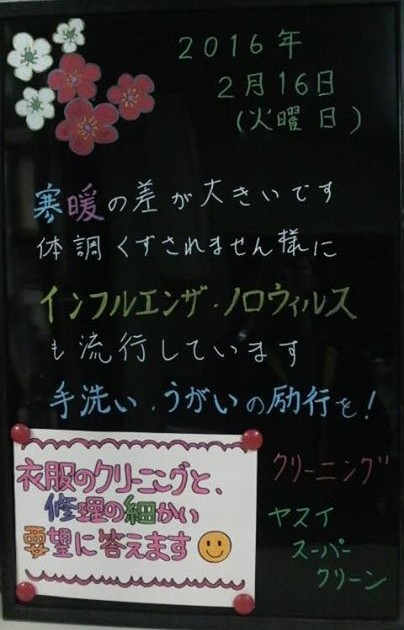 2016年
2月16日
(火曜日)
寒暖の差が大きいです
体調くずされません様に
インフルエンザ・ノロウィルス
も流行しています
手洗い・うがいの励行を!
衣服のクリーニングと、
修理の細かい
要望に答えます
クリーニング
ヤスイ
スーパー
クリーン